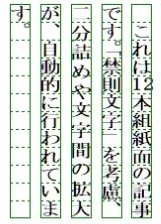 これは12本組紙面の記事
です。「禁則文字」を考慮、
二分詰めや文字間の拡大
が、自動的に行われていま
す。